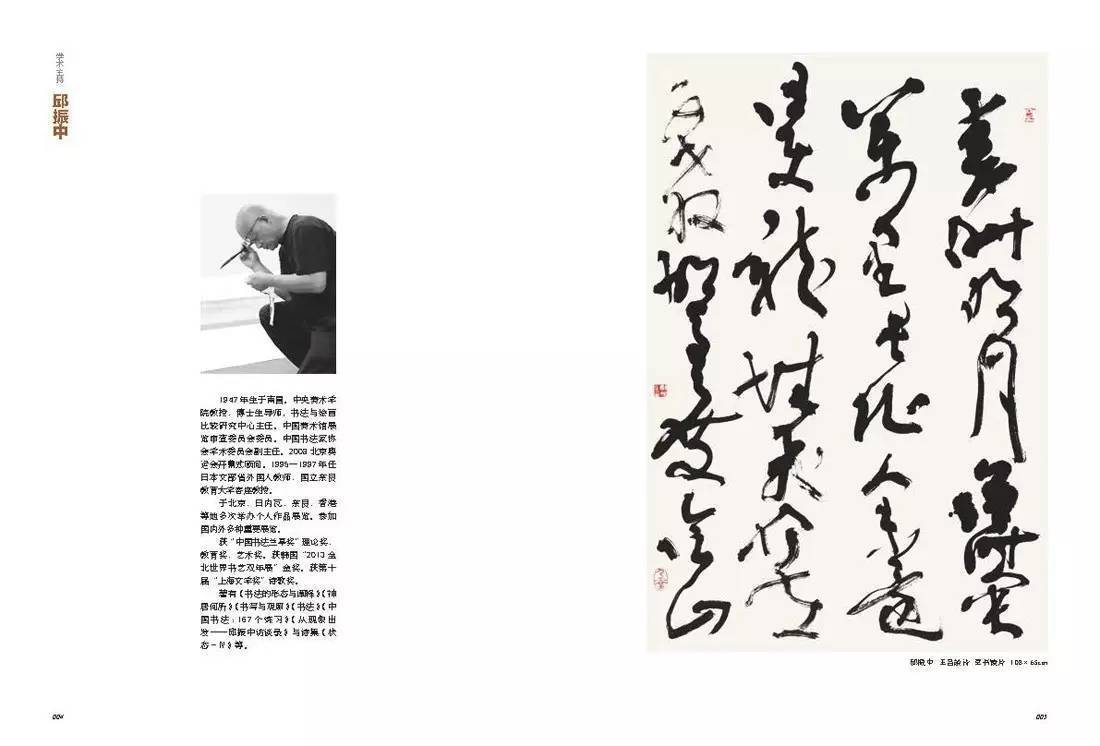 学术主持
邱振中
1947年生于南昌。中央美术学
院教授、博士生导师，书法与绘画
比较研究中心主任。中国美术馆展
览审查委员会委员。中国书法家协
会学术委员会副主任。2008北京奥
运会开幕式顾问。1995—1997年任
日本文部省外国人教师、国立奈良
教育大学客座教授。
于北京、日内瓦、奈良、香港
等地多次举办个人作品展览。参加
国内外多种重要展览。
获“中国书法兰亭奖”理论奖、
教育奖、艺术奖。获韩国“2013全
北世界书艺双年展”金奖。获第十
届“上海文学奖”诗歌奖。
著有《书法的形态与阐释》《神
居何所》《书写与观照》《书法》《中
国书法：167个练习》《从现象出
发——邱振中访谈录》与诗集《状
态-Ⅳ》等。
004
秦時明月漢時關
萬里長征人未還
但使龍城飛將在
不教胡馬度陰山
邱振中 王昌龄诗 草书镜片 108×65cm
005